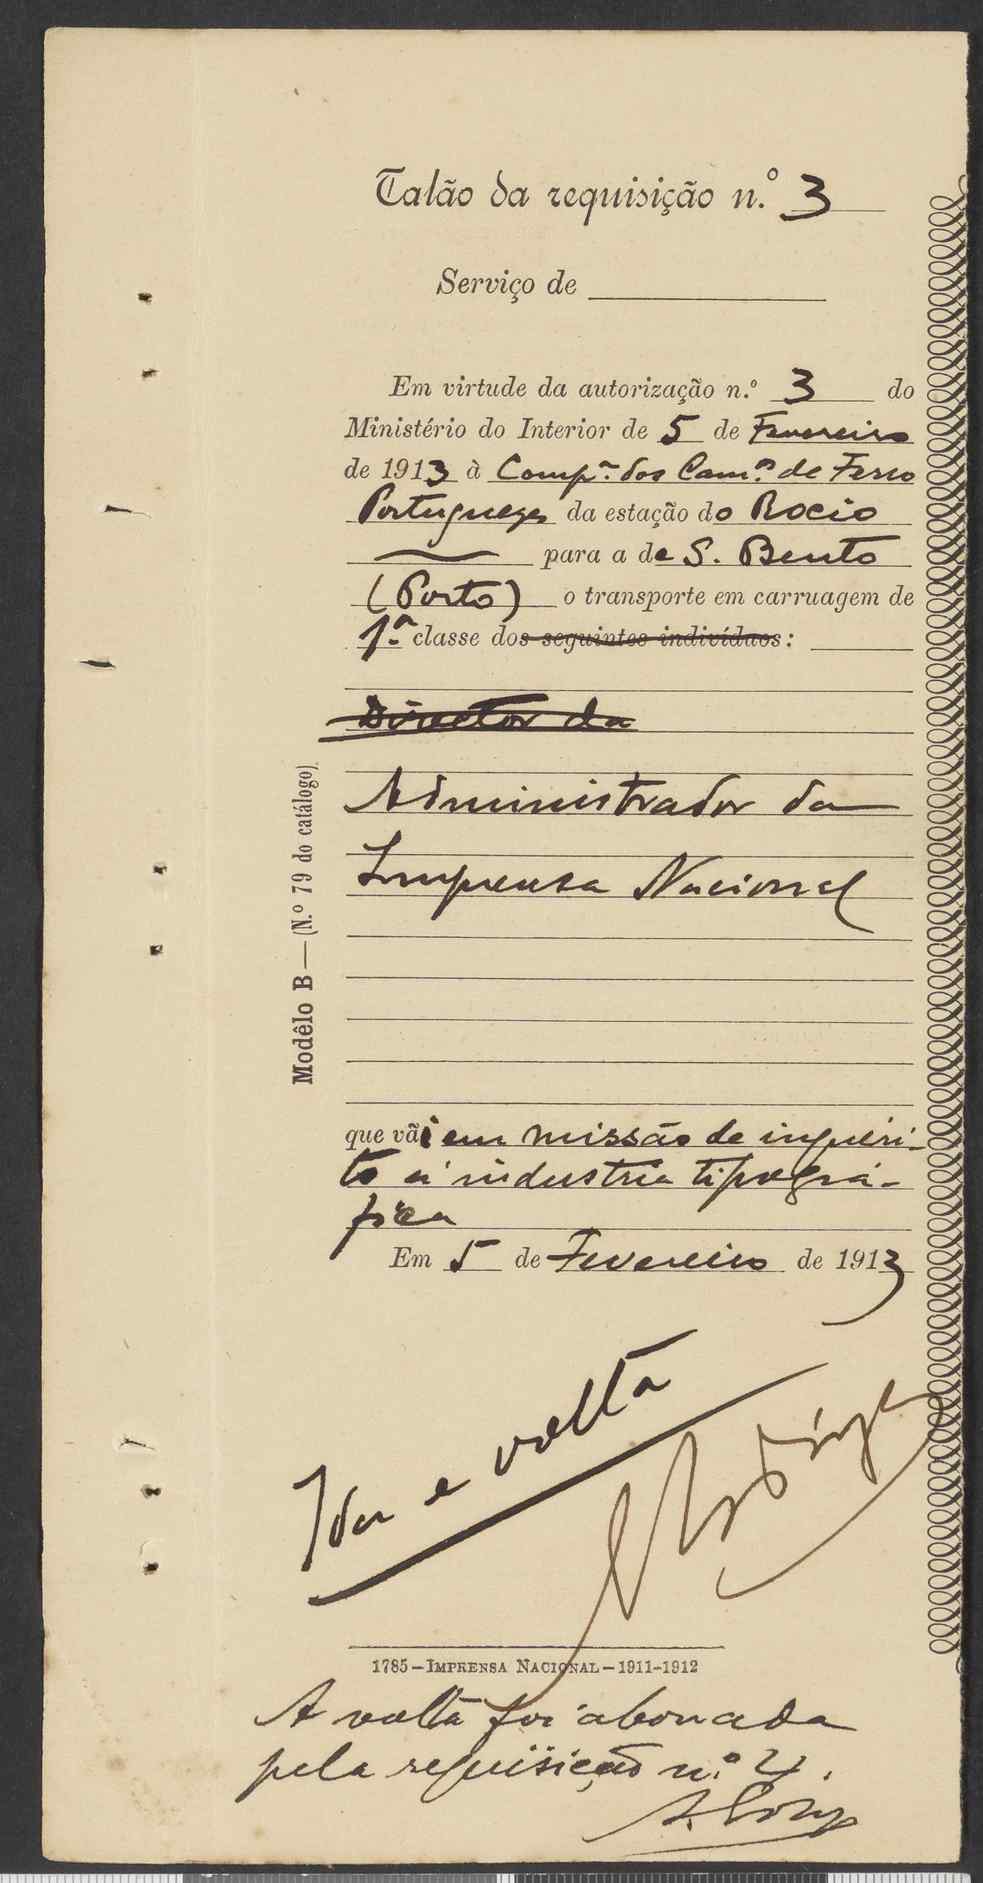 Talão da requisição n.º 3
Serviço de
Em virtude da autorização n.º 3 do
Ministério do Interior de 5 de Fevereiro
de 1913 à Comp.ª dos Cam.os de Ferro
Portugueses da estação do Rocio
para a de S. Bento
(Porto) o transporte em carruagem de
1.ª classe dos seguintes indivíduos:
Director da
Administrador da
Imprensa Nacional
Modêlo B—(N.º 79 do catálogo)
que vãi em missão de inquéri-
to á industria tipográ-
fica
Em 5 de Fevereiro de 1913
Ida e volta
1785—IMPRENSA NACIONAL—1911-1912
A volta foi abonada
pela requisição n.º 4.